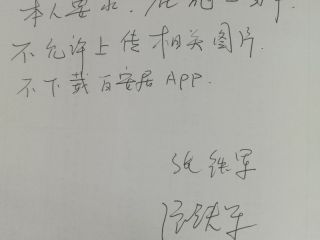 本人要求.
不允许上传相关图片.
不下载百安居APP.
张铁军